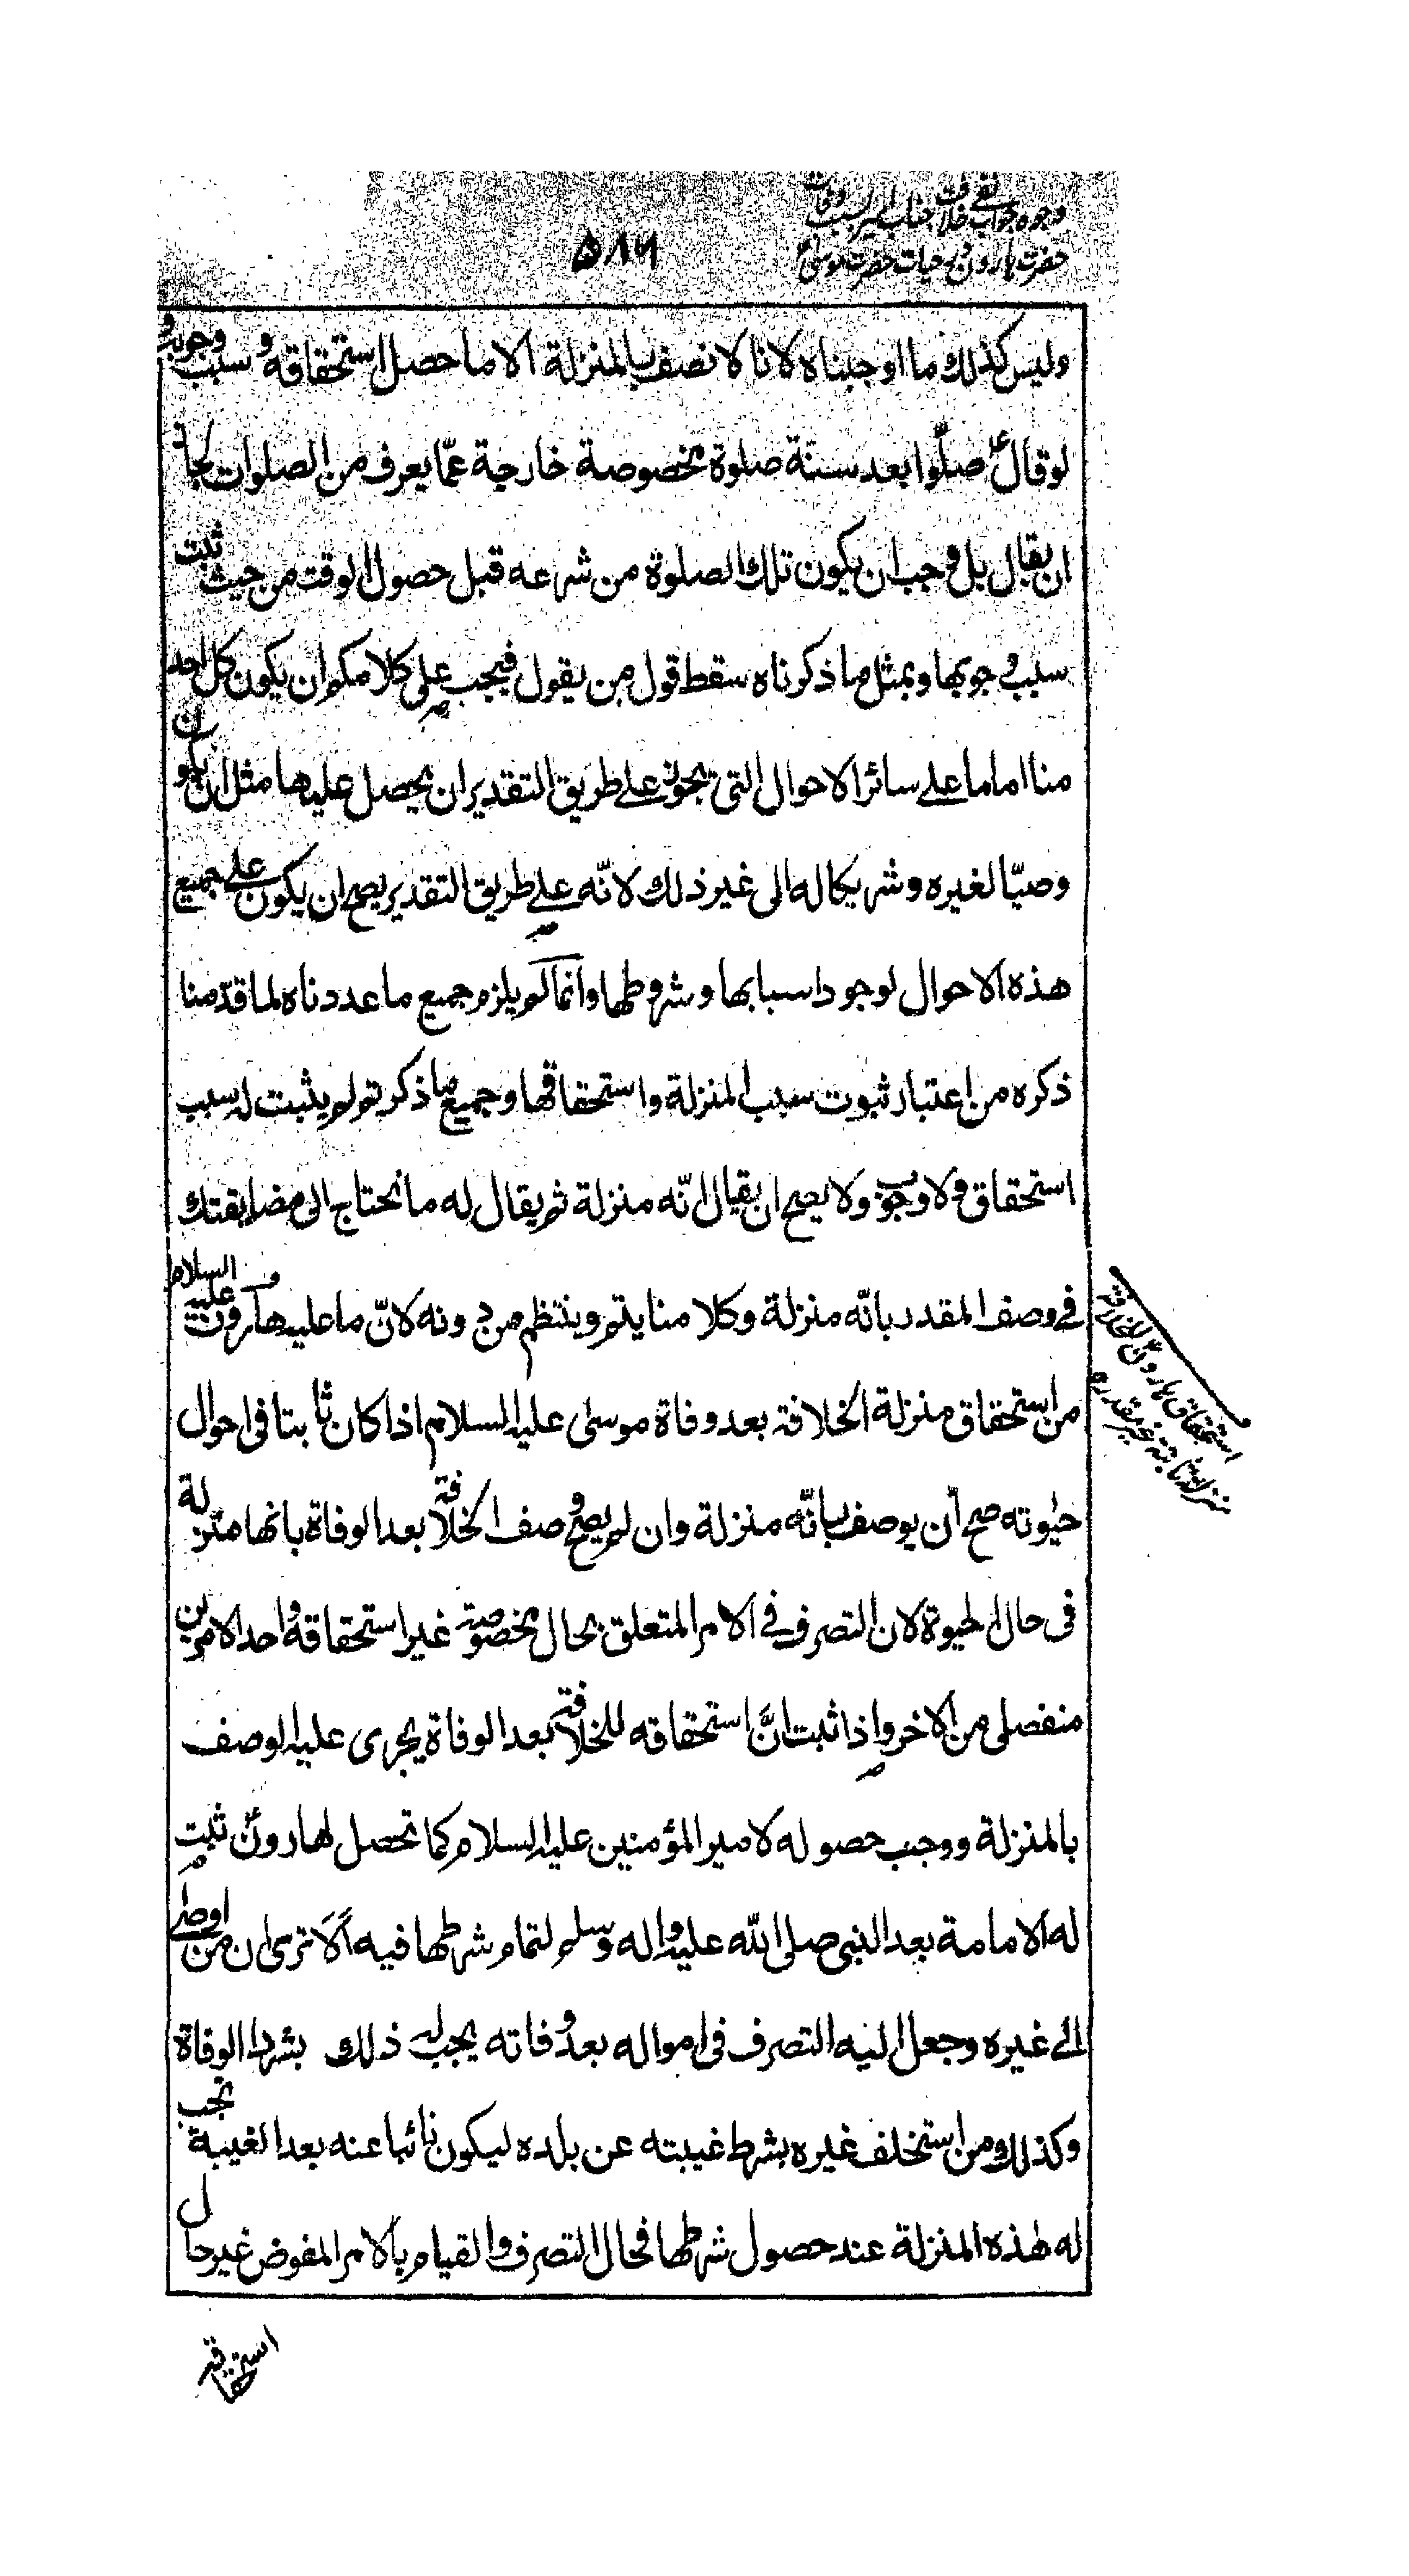 وجوه جواب نفی خلافت جناب امیر بسبب وفات
حضرت هارون بحیات حضرت موسیٰ
۵۸۶
ولیس کذلک ما اوجبناه لانا لا نصف بالمنزلة الا ما حصل استحقاقه وسبب وجوبه و
لو قالؑ صلّوا بعد سنة صلوة مخصوصة خارجة عمّا یعرف من الصلوات لجاز
ان یقال بل وجب ان یکون تلک الصلوة من شرعه قبل حصول الوقت من حیث ثبت
سبب وجوبها وبمثل ما ذکرناه سقط قول من یقول فیجب علی کلامکم ان یکون کل احد
منا اماما علے سائر الاحوال التی یجوز علے طریق التقدیر ان یحصل علیها مثل ان یکون
وصیّا لغیره وشریکا له الی غیر ذلک لانّه علے طریق التقدیر یصح ان یکون علے جمیع
هذه الاحوال لوجود اسبابها وشروطها وانّما لم یلزم جمیع ما عددناه لما قدّمنا
ذکره من اعتبار ثبوت سبب المنزلة واستحقاقها وجمیع ما ذکر تو لم یثبت له سبب
استحقاق ولا وجوب ولا یصح ان یقال انّه منزلة ثم یقال له ما نحتاج الی مضایقتک
فی وصف المقدر بانّه منزلة وکلامنا یتم وینتظم من دونه لانّ ما علیه هارون علیه السلام
من استحقاق منزلة الخلافة بعد وفاة موسیٰ علیه السلام اذا کان ثابتا فی احوال
حیوته صح أن یوصف بانّه منزلة وان لم یصح وصف الخلافة بعد الوفاة بانها منزلة
فی حال الحیوة لان التصرف فی الامر المتعلق بحال مخصوصة غیر استحقاقه واحد الامرین
منفصل من الاخر واذا ثبت انَّ استحقاقه للخلافة بعد الوفاة یجری علیه الوصف
بالمنزلة ووجب حصوله لامیر المؤمنین علیه السلام کما تحصل لهارونؑ ثبت
له الامامة بعد النبی صلی الله علیه واله وسلم لتمام شرطها فیه اَلَا تری ان من اوصٰی
الیٰ غیره وجعل الیه التصرف فی امواله بعد وفاته یجب له ذلک بشرط الوفاة
وکذلک من استخلف غیره بشرط غیبته عن بلده لیکون نائبا عنه بعد الغیبة تجب
له هذه المنزلة عند حصول شرطها فحال التصرف والقیام بالامر المفوض غیر حال
استحقاق هارونؑ للخلافة
منزلة ثابتة غیر مقدره
استحقاقه